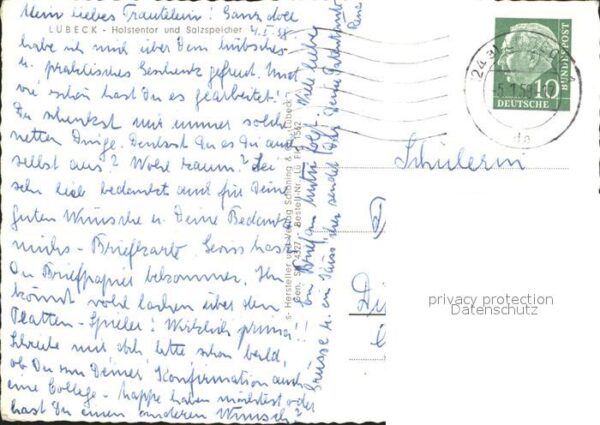 Mein lieber Trautelein! Ganz doll
LÜBECK - Holstentor und Salzspeicher 4.I.58
habe ich mich über dein hübsches
u. praktisches Geschenk gefreut. Und
wie schön hast Du es gearbeitet!
Du schenkst mir immer solch
netten Dinge. Denkst Du es Dir auch
selbst aus? Wohl kaum? Sei
sehr lieb bedankt auch für Deine
guten Wünsche u. Deine Bedank
michs - Briefkarte. Gewiss hast
Du Briefpapier bekommen. Ihr
könnt wohl lachen über den
Platten-Spieler! Wirklich prima!!
Schreibe mir doch bitte schon bald,
ob Du zu Deiner Konfirmation auch
eine College-Mappe haben möchtest oder
hast Du einen anderen Wunsch?
Ein Brief an Mutti folgt. Viele liebe
Grüsse u. ein Küsschen sendet Dir Deine Patentante
s- Hersteller und Verlag Schöning & Co., Lübeck
Gen. SH 4327 Bestell-Nr. Lü FK 1562
24
-5.1.58
10
DEUTSCHE
BUNDESPOST
Schülerin
privacy protection
Datenschutz